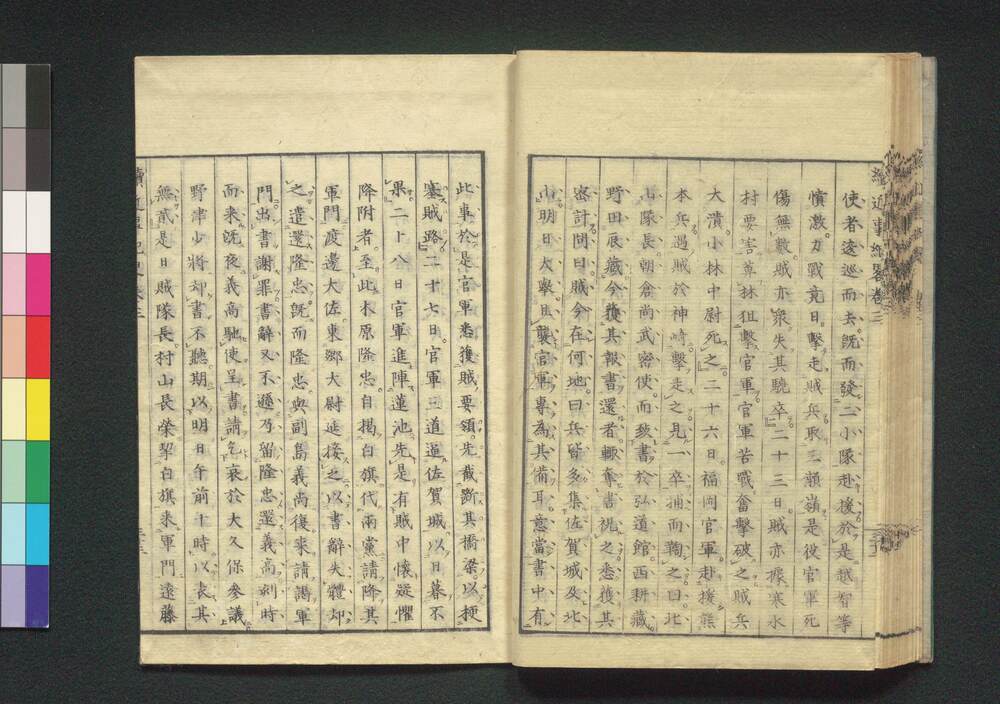 使者逡巡而去。既而發二小隊赴援於是。越智等
憤激力戰竟日。擊走賊兵取三瀬嶺是役官軍死
傷無數。賊亦衆失其驍卒二十三日。賊亦據寒水
村要害。莽林狙擊官軍官軍苦戰奮擊破之賊兵
大潰。小林中尉死之二十六日。福岡官軍赴援熊
本兵遇賊於神崎擊走之見一卒捕而鞫之曰。北
山隊長朝倉尚武密使。而致書於弘道館。西耕藏
野田辰藏今獲其報書還者。輙奪書視之悉獲其
密計問曰。賊今在何地。曰兵皆多集佐賀城及北
山明日大擧且襲官軍專為其備耳。意當書中有
此事於是官軍悉獲賊要領。先截斷其橋梁以梗
塞賊路二十七日。官軍三道逼佐賀城以日暮不
果。二十八日官軍進陣蓮池先是有賊中懷疑懼
降附者。至此木原隆忠自揭白旗代兩黨請降其
軍門渡邊大佐。東郷大尉延接之以書辭失體却
之遣還隆忠既而隆忠與副島義尚復來請謁軍
門出書謝罪書辭又不遜乃留隆忠還義高刻時
而来既夜義高馳使呈書請乞哀於大久保參議
野津少將却書不聽期以明日午前十時以表其
無貳是日賊隊長村山長榮挈白旗来軍門遠藤